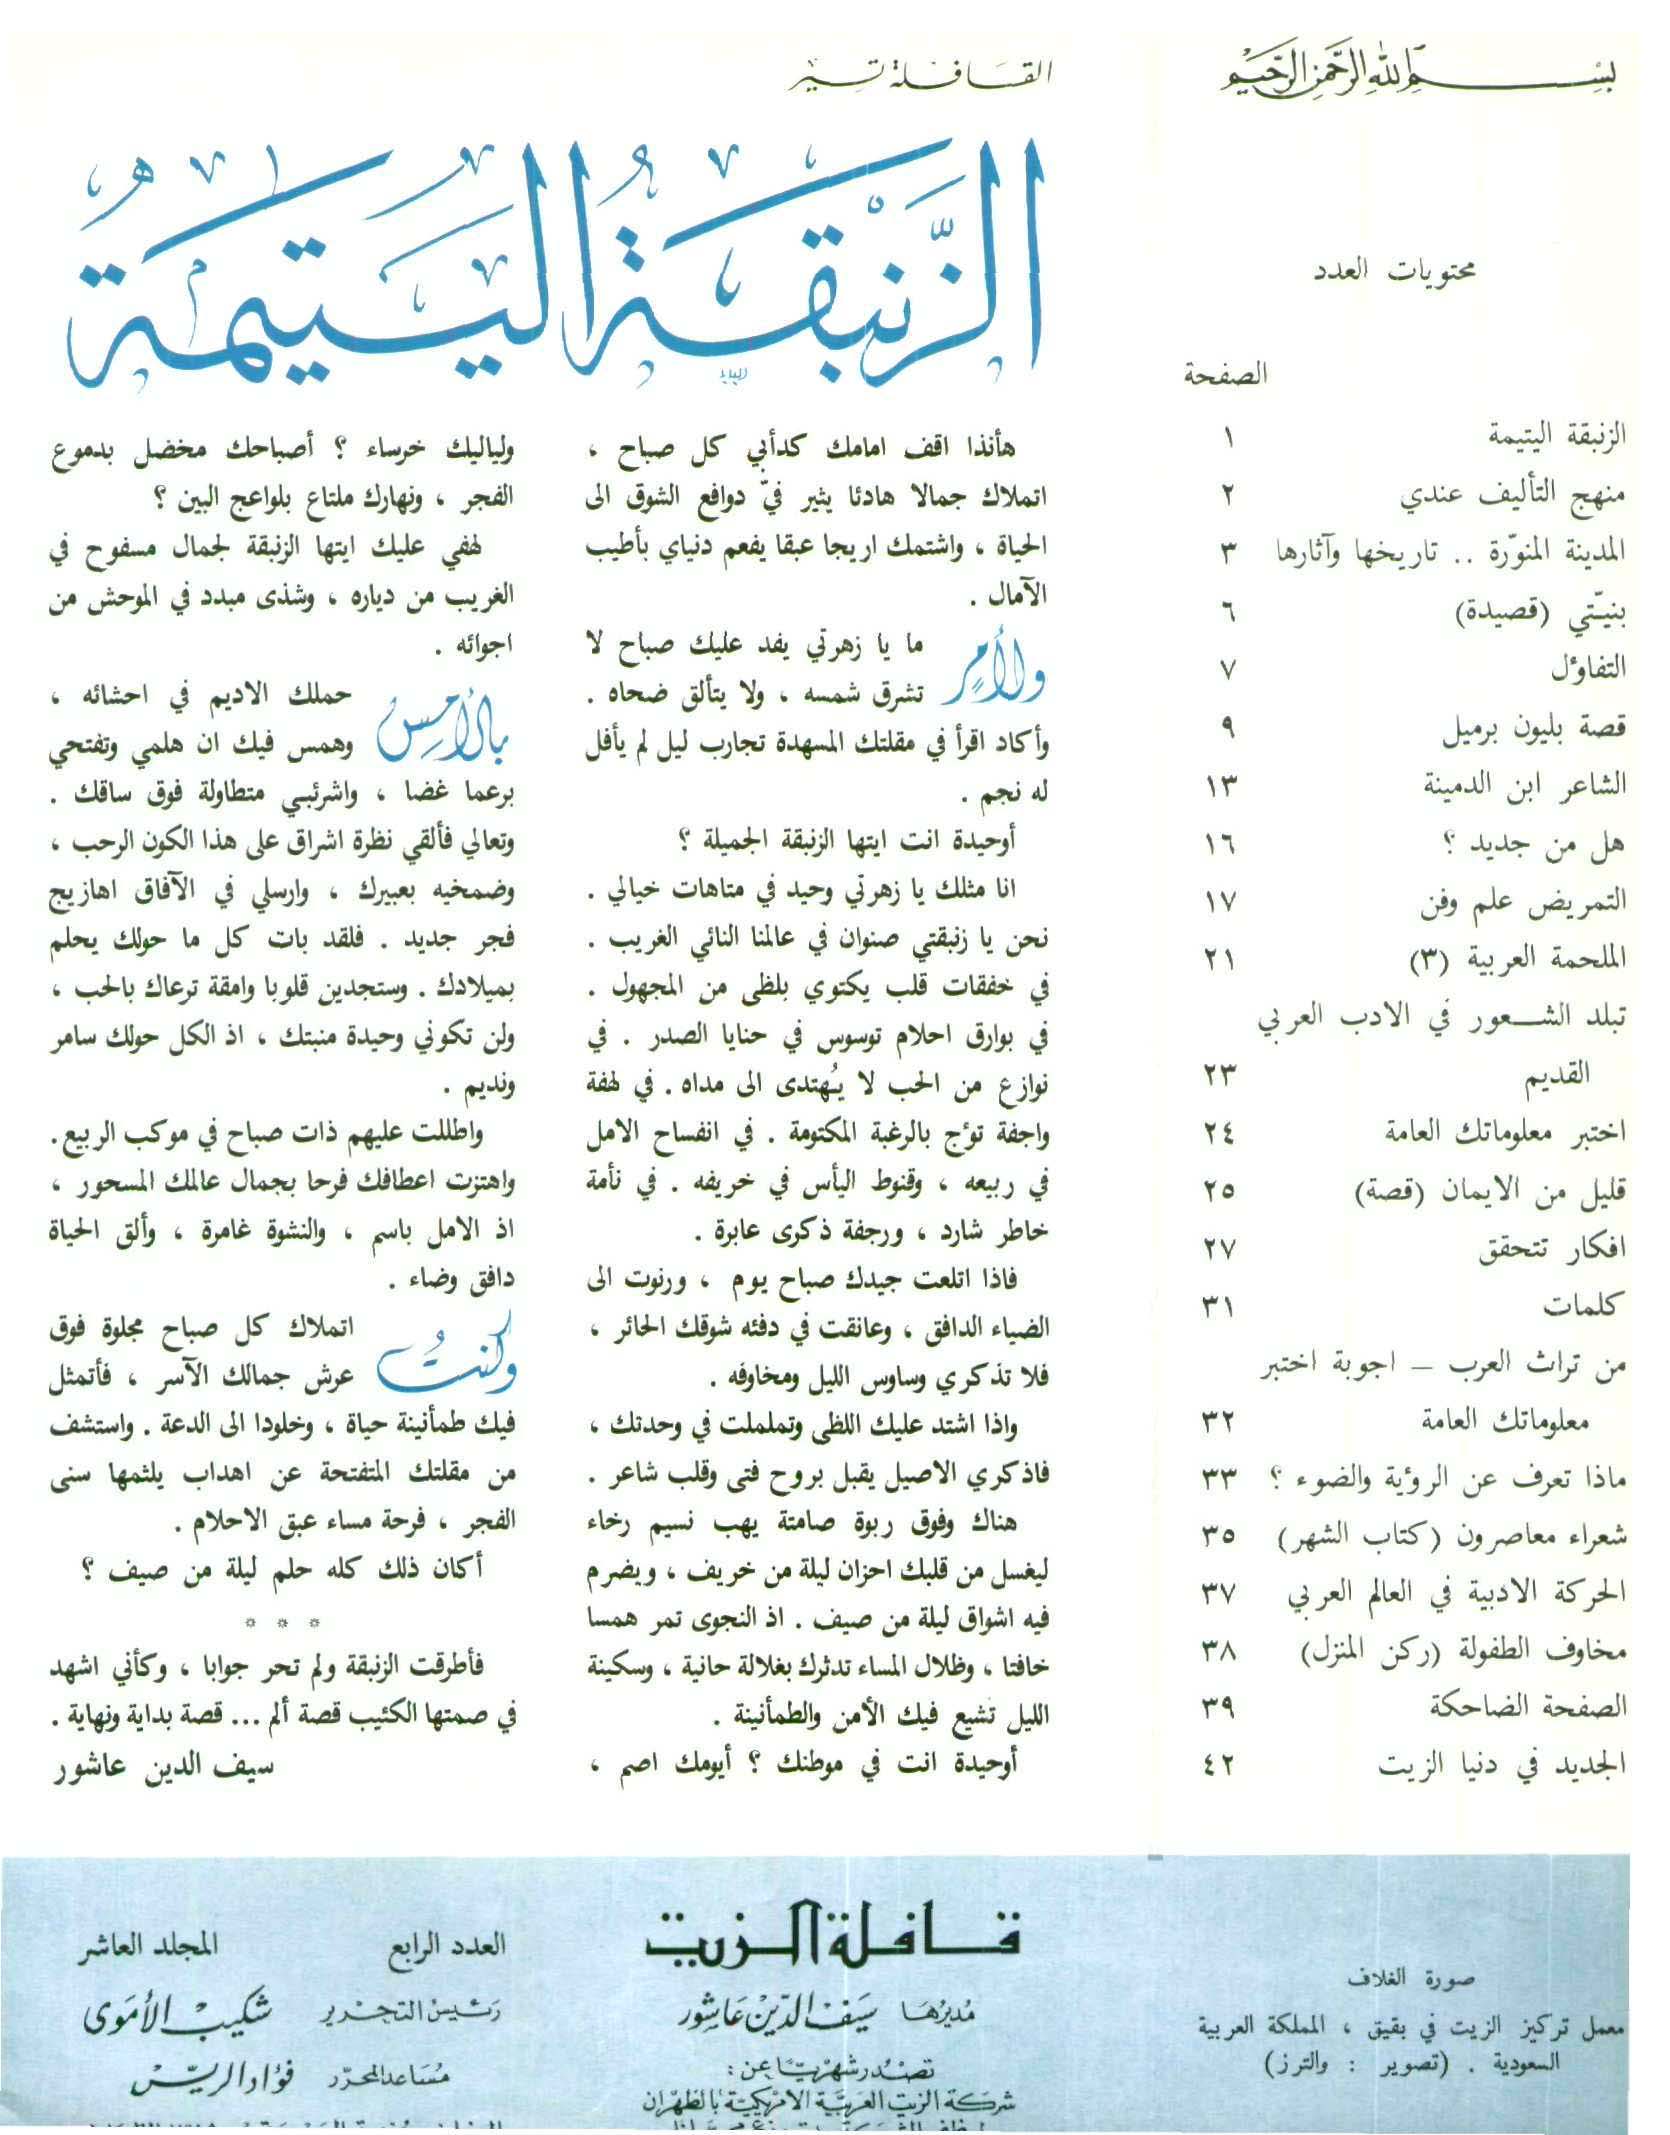 بسم الله الرحمن الرحيم
محتويات العدد
الصفحة
الزنبقة اليتيمة ١
منهج التأليف عندي ٢
المدينة المنوّرة .. تاريخها وآثارها ٣
بنيّتي (قصيدة) ٦
التفاؤل ٧
قصة بليون برميل ٩
الشاعر ابن الدمينة ١٣
هل من جديد ؟ ١٦
التمريض علم وفن ١٧
الملحمة العربية (٣) ٢١
تبلد الشعور في الادب العربي
القديم ٢٣
اختبر معلوماتك العامة ٢٤
قليل من الايمان (قصة) ٢٥
افكار تتحقق ٢٧
كلمات ٣١
من تراث العرب – اجوبة اختبر
معلوماتك العامة ٣٢
ماذا تعرف عن الرؤية والضوء ؟ ٣٣
شعراء معاصرون (كتاب الشهر) ٣٥
الحركة الادبية في العالم العربي ٣٧
مخاوف الطفولة (ركن المنزل) ٣٨
الصفحة الضاحكة ٣٩
الجديد في دنيا الزيت ٤٢
القافلة تسير
الزَّنبقَةُ اليَتيمَةُ
هأنذا اقف امامك كدأبي كل صباح ،
اتملاك جمالا هادئا يثير فيّ دوافع الشوق الى
الحياة ، واشتمك اريجا عبقا يفعم دنياي بأطيب
الآمال .
ولأمرٍ ما يا زهرتي يفد عليك صباح لا
تشرق شمسه ، ولا يتألق ضحاه .
وأكاد اقرأ في مقلتك المسهدة تجارب ليل لم يأفل
له نجم .
أوحيدة انت ايتها الزنبقة الجميلة ؟
انا مثلك يا زهرتي وحيد في متاهات خيالي .
نحن يا زنبقتي صنوان في عالمنا النائي الغريب .
في خفقات قلب يكتوي بلظى من المجهول .
في بوارق احلام توسوس في حنايا الصدر . في
نوازع من الحب لا يُهتدى الى مداه . في لهفة
واجفة تؤج بالرغبة المكتومة . في انفساح الامل
في ربيعه ، وقنوط اليأس في خريفه . في نأمة
خاطر شارد ، ورجفة ذكرى عابرة .
فاذا اتلعت جيدك صباح يوم ، ورنوت الى
الضياء الدافق ، وعانقت في دفئه شوقك الحائر ،
فلا تذكري وساوس الليل ومخاوفه .
واذا اشتد عليك اللظى وتململت في وحدتك ،
فاذكري الاصيل يقبل بروح فتى وقلب شاعر .
هناك وفوق ربوة صامتة يهب نسيم رخاء
ليغسل من قلبك احزان ليلة من خريف ، ويضرم
فيه اشواق ليلة من صيف . اذ النجوى تمر همسا
خافتا ، وظلال المساء تدثرك بغلالة حانية ، وسكينة
الليل تشيع فيك الأمن والطمأنينة .
أوحيدة انت في موطنك ؟ أيومك اصم ،
ولياليك خرساء ؟ أصباحك مخضل بدموع
الفجر ، ونهارك ملتاع بلواعج البين ؟
لهفي عليك ايتها الزنبقة لجمال مسفوح في
الغريب من دياره ، وشذى مبدد في الموحش من
اجوائه .
بالأمس حملك الاديم في احشائه ،
وهمس فيك ان هلمي وتفتحي
برعما غضا ، واشرئبي متطاولة فوق ساقك .
وتعالي فألقي نظرة اشراق على هذا الكون الرحب ،
وضمخيه بعبيرك ، وارسلي في الآفاق اهازيج
فجر جديد . فلقد بات كل ما حولك يحلم
بميلادك . وستجدين قلوبا وامقة ترعاك بالحب ،
ولن تكوني وحيدة منبتك ، اذ الكل حولك سامر
ونديم .
واطللت عليهم ذات صباح في موكب الربيع.
واهتزت اعطافك فرحا بجمال عالمك المسحور ،
اذ الامل باسم ، والنشوة غامرة ، وألق الحياة
دافق وضاء .
وكنتُ اتملاك كل صباح مجلوة فوق
عرش جمالك الآسر ، فأتمثل
فيك طمأنينة حياة ، وخلودا الى الدعة . واستشف
من مقلتك المتفتحة عن اهداب يلثمها سنى
الفجر ، فرحة مساء عبق الاحلام .
أكان ذلك كله حلم ليلة من صيف ؟
* * *
فأطرقت الزنبقة ولم تحر جوابا ، وكأني اشهد
في صمتها الكئيب قصة ألم ... قصة بداية ونهاية .
سيف الدين عاشور
صورة الغلاف
معمل تركيز الزيت في بقيق ، المملكة العربية
السعودية . (تصوير : والترز)
قافلة الزيت
مديرها سيف الدين عاشور
تصدر شهريًا عن :
شركة الزيت العربية الامريكية بالظهران
العدد الرابع المجلد العاشر
رئيس التحرير شكيب الأموي
مساعد المحرر فؤاد الريس